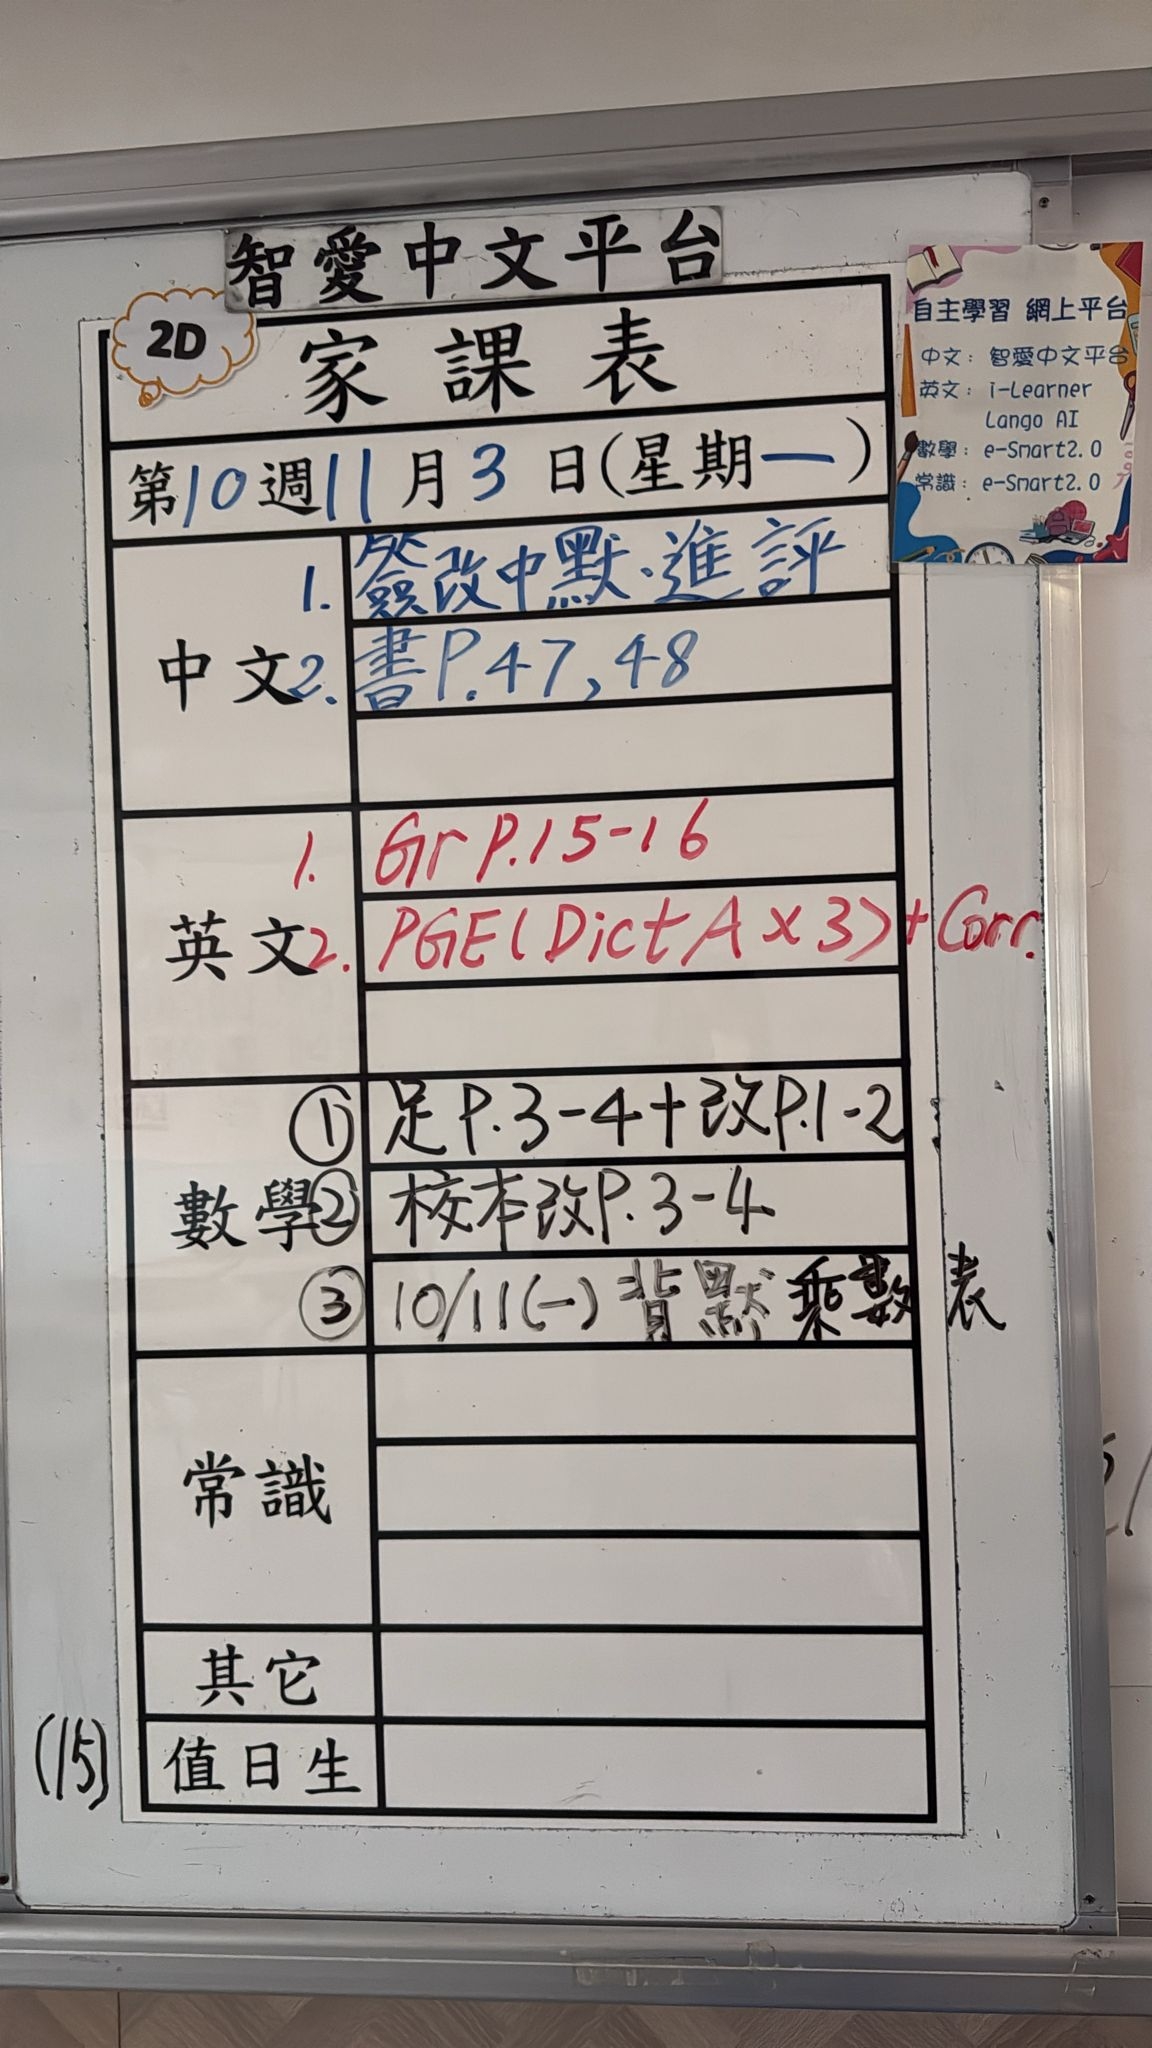 智愛中文平台
2D
家課表
第10週11月3日(星期一)
中文
1. 簽改中默、進評
2. 書P.47,48
英文
1. Gr P.15-16
2. PGE(Dict A x 3)+Corr.
數學
① 足P.3-4+改P.1-2
② 校本改P.3-4
③ 10/11(一)背默乘數表
常識
其它
值日生
(15)
自主學習 網上平台
中文: 智愛中文平台
英文: i-Learner
Lango AI
數學: e-Smart2.0
常識: e-Smart2.0